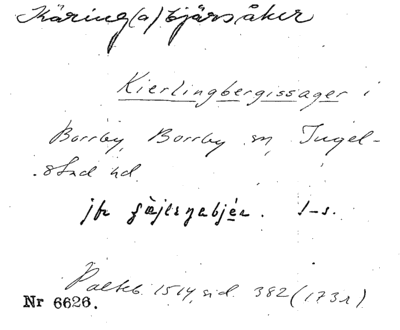 Käring(a)bjärsåker
Kierlingbergissager i
Borrby, Borrby sn, Ingel-
stad hd.
jfr 1-s.
Palteb. 1514, sid. 382 (173r)
Nr 6626.